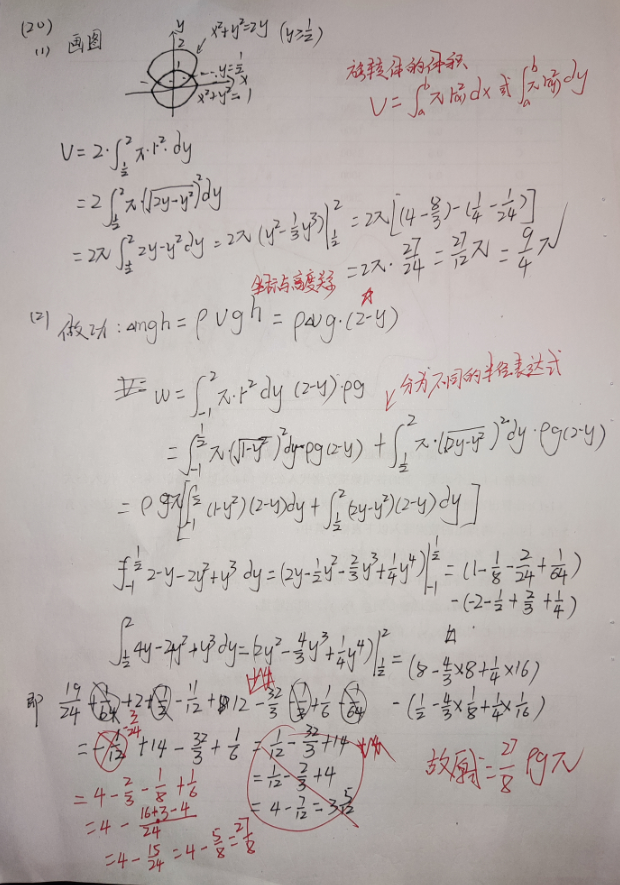 (20)
(1) 画图
y
2
x²+y²=2y (y≥1/2)
1
y=1/2
x
x²+y²=1
旋转体的体积
V=∫_a^b π r²(x) dx 或 ∫_a^b π r²(y) dy
V=2·∫_{1/2}^2 π·r²·dy
=2∫_{1/2}^2 π·(√(2y-y²))²dy
=2π∫_{1/2}^2 2y-y²dy=2π(y²-1/3y³)|_{1/2}^2=2π[(4-8/3)-(1/4-1/24)]
=2π·27/24=27/12π=9/4π
坐标与高度关系
(2) 做功:△mgh=ρVgh=ρ△Vg·(2-y)
W=∫_{-1}^2 π·r²dy(2-y)·ρg
分为不同的半径表达式
=∫_{-1}^{1/2} π·(√(1-y²))²dy·ρg(2-y)+∫_{1/2}^2 π·(√(2y-y²))²dy·ρg(2-y)
=ρgπ[∫_{-1}^{1/2}(1-y²)(2-y)dy+∫_{1/2}^2(2y-y²)(2-y)dy]
∫_{-1}^{1/2} 2-y-2y²+y³dy=(2y-1/2y²-2/3y³+1/4y⁴)|_{-1}^{1/2}=(1-1/8-2/24+1/64)
-(-2-1/2+2/3+1/4)
∫_{1/2}^2 4y-4y²+y³dy=(2y²-4/3y³+1/4y⁴)|_{1/2}^2=(8-4/3×8+1/4×16)
-(1/2-4/3×1/8+1/4×1/16)
即 19/24+1/64+2+1/2-11/12+12-32/3-1/2+1/6-1/64
=-1/12+14-32/3+1/6=1/12-32/3+14
=1/12-2/3+4
=4-7/12=3 5/12
-3/24
=4-2/3-1/8+1/6
=4-(16+3-4)/24
=4-15/24=4-5/8=27/8
故原式=27/8ρgπ